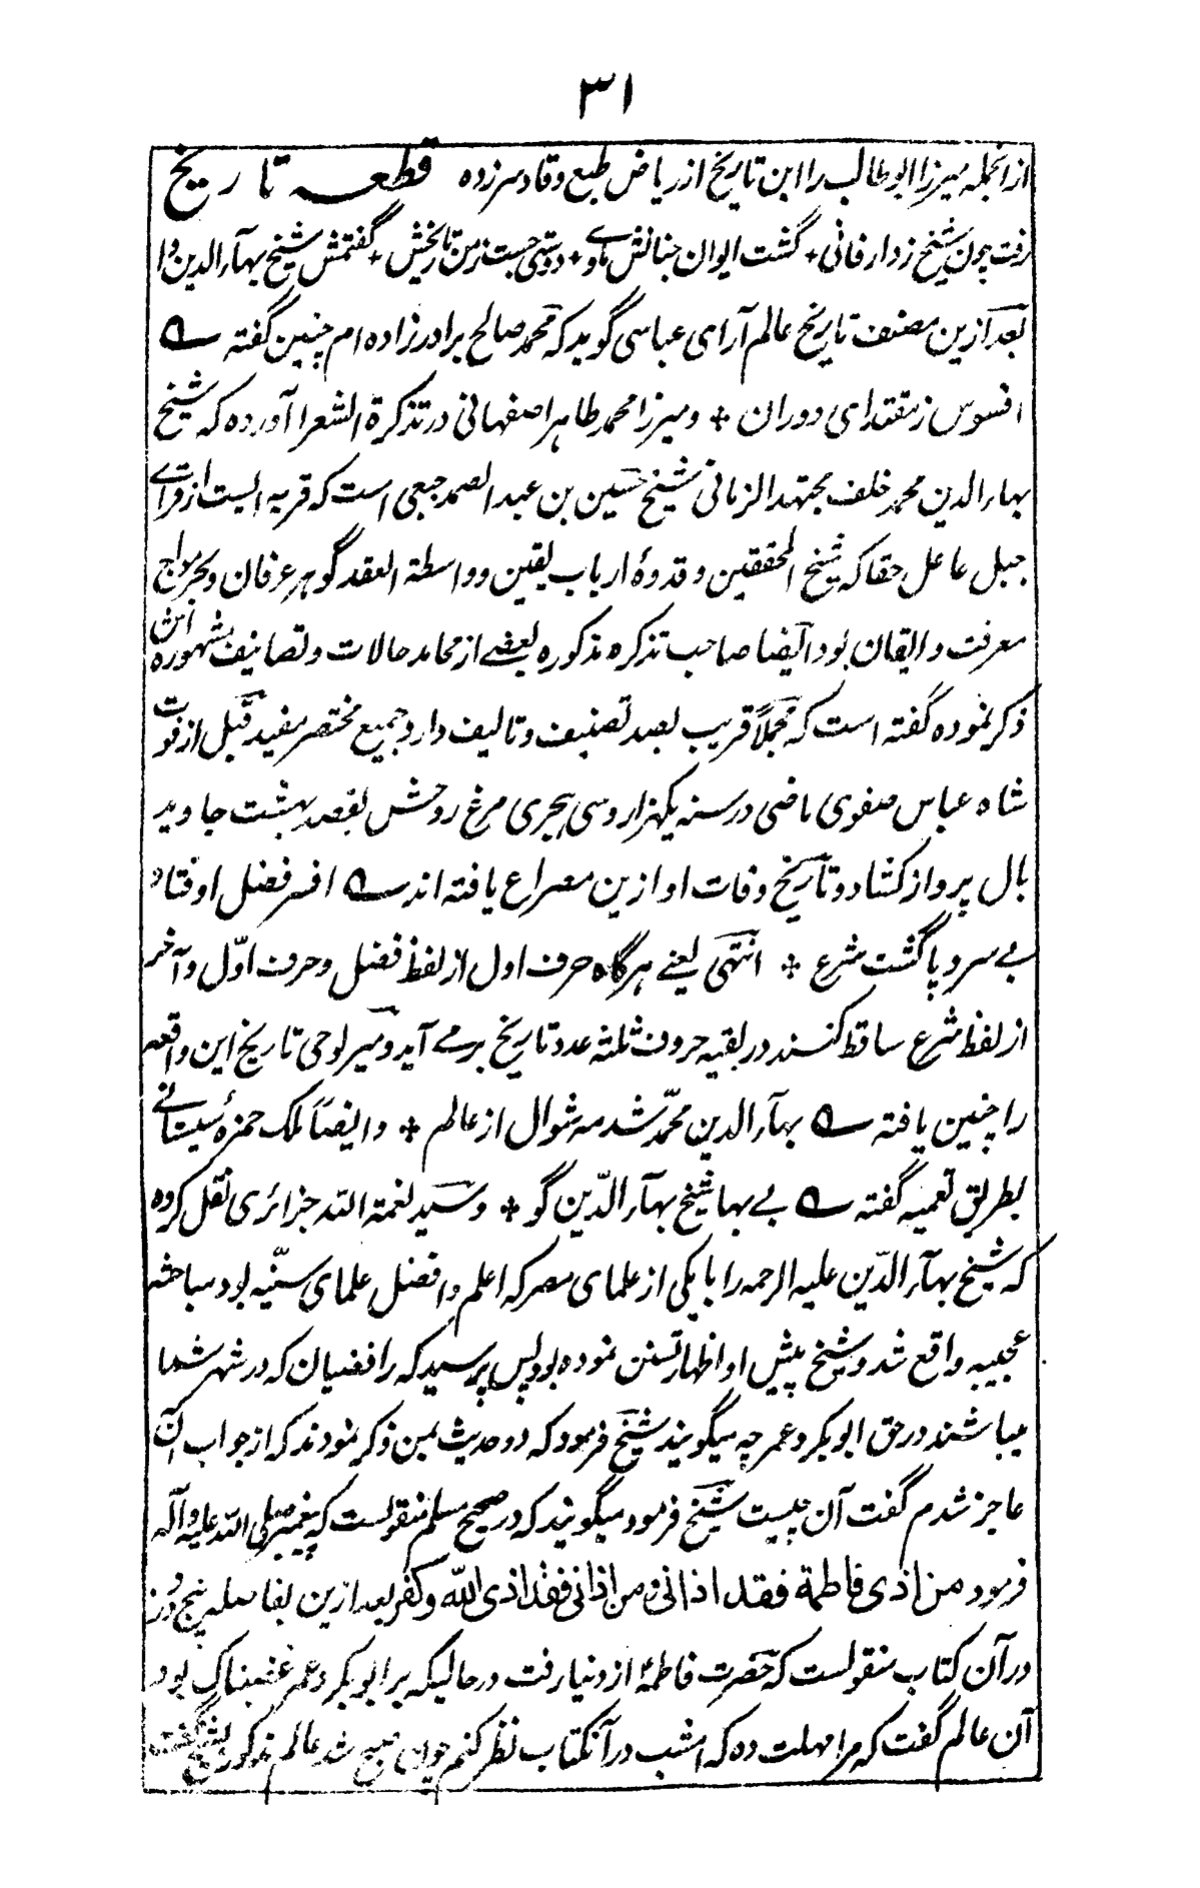 ۳۱
از انجمله میرزا ابو طالب را این تاریخ از ریاض طبع وقاد سرزده قطعه تاریخ
رفت چون شیخ ز دار فانی + گشت ایوان جنانش ماوے + دوستی جست ز من تاریخش + گفتمش شیخ بهآء الدین وا
بعد ازین مصنف تاریخ عالم آرای عباسی گوید که محمد صالح برادرزاده ام چنین گفته ؎
افسوس ز مقتدای دوران + و میرزا محمد طاهر اصفهانی در تذکرة الشعرا آورده که شیخ
بهاء الدین محمد خلف مجتهد الزمانی شیخ حسین بن عبد الصمد جبعی است که قریه ایست از قراے
جبل عاعل حقا که شیخ المحققین و قدوهٔ ارباب یقین و واسطة العقد گوهر عرفان و بحر مواج
معرفت و ایقان بود ایضا صاحب تذکره مذکوره بعضے از محامد حالات و تصانیف مشهوره اش
ذکر نموده گفته است که مجملاً قریب بصد تصنیف و تالیف دارد جمیع مختصر مفید قبل از فوت
شاه عباس صفوی ماضی در سنه یکهزار و سی هجری مرغ روحش بقصد بهشت جاوید
بال پرواز کشاد و تاریخ وفات او ازین مصراع یافته اند ؎ افسر فضل اوفتاد
بے سر و پا گشت شرع + انتهی یعنے هرگاه حرف اول از لفظ فضل و حرف اوّل و آخر
از لفظ شرع ساقط کنند در بقیه حروف ثلثه عدد تاریخ برمے آید و میر لوحی تاریخ این واقعه
را چنین یافته ؎ بهآء الدین محمّد شد مه شوال از عالم + و ایضاً ملک حمزهٔ سیستانے
بطریق تعمیه گفته ؎ بے بها شیخ بهآء الدّین گو + و سید نعمة الله جزائری نقل کرده
که شیخ بهآء الدّین علیه الرحمه را با یکی از علمای مصر که اعلم و افضل علمای سنّیه بود مباحثه
عجیبه واقع شد و شیخ پیش او اظهار تسنن نموده بود پس پرسید که رافضیان که در شهر شما
میباشند در حق ابوبکر و عمر چه میگویند شیخ فرمود که دو حدیث بمن ذکر نمودند که از جواب آن
عاجز شدم گفت آن چیست شیخ فرمود میگویند که در صحیح مسلم منقولست که پیغمبر صلی الله علیه و آله
فرمود من اذی فاطمة فقد اذانی و من اذانی فقد اذی الله و کفر بعد ازین بفاصله پنج ورق
در آن کتاب منقولست که حضرت فاطمهؑ از دنیا رفت در حالیکه بر ابوبکر و عمر غضبناک بود
آن عالم گفت که مرا مهلت ده که امشب در آنکتاب نظر کنم چون صبح شد عالم مذکور بشیخ گفت